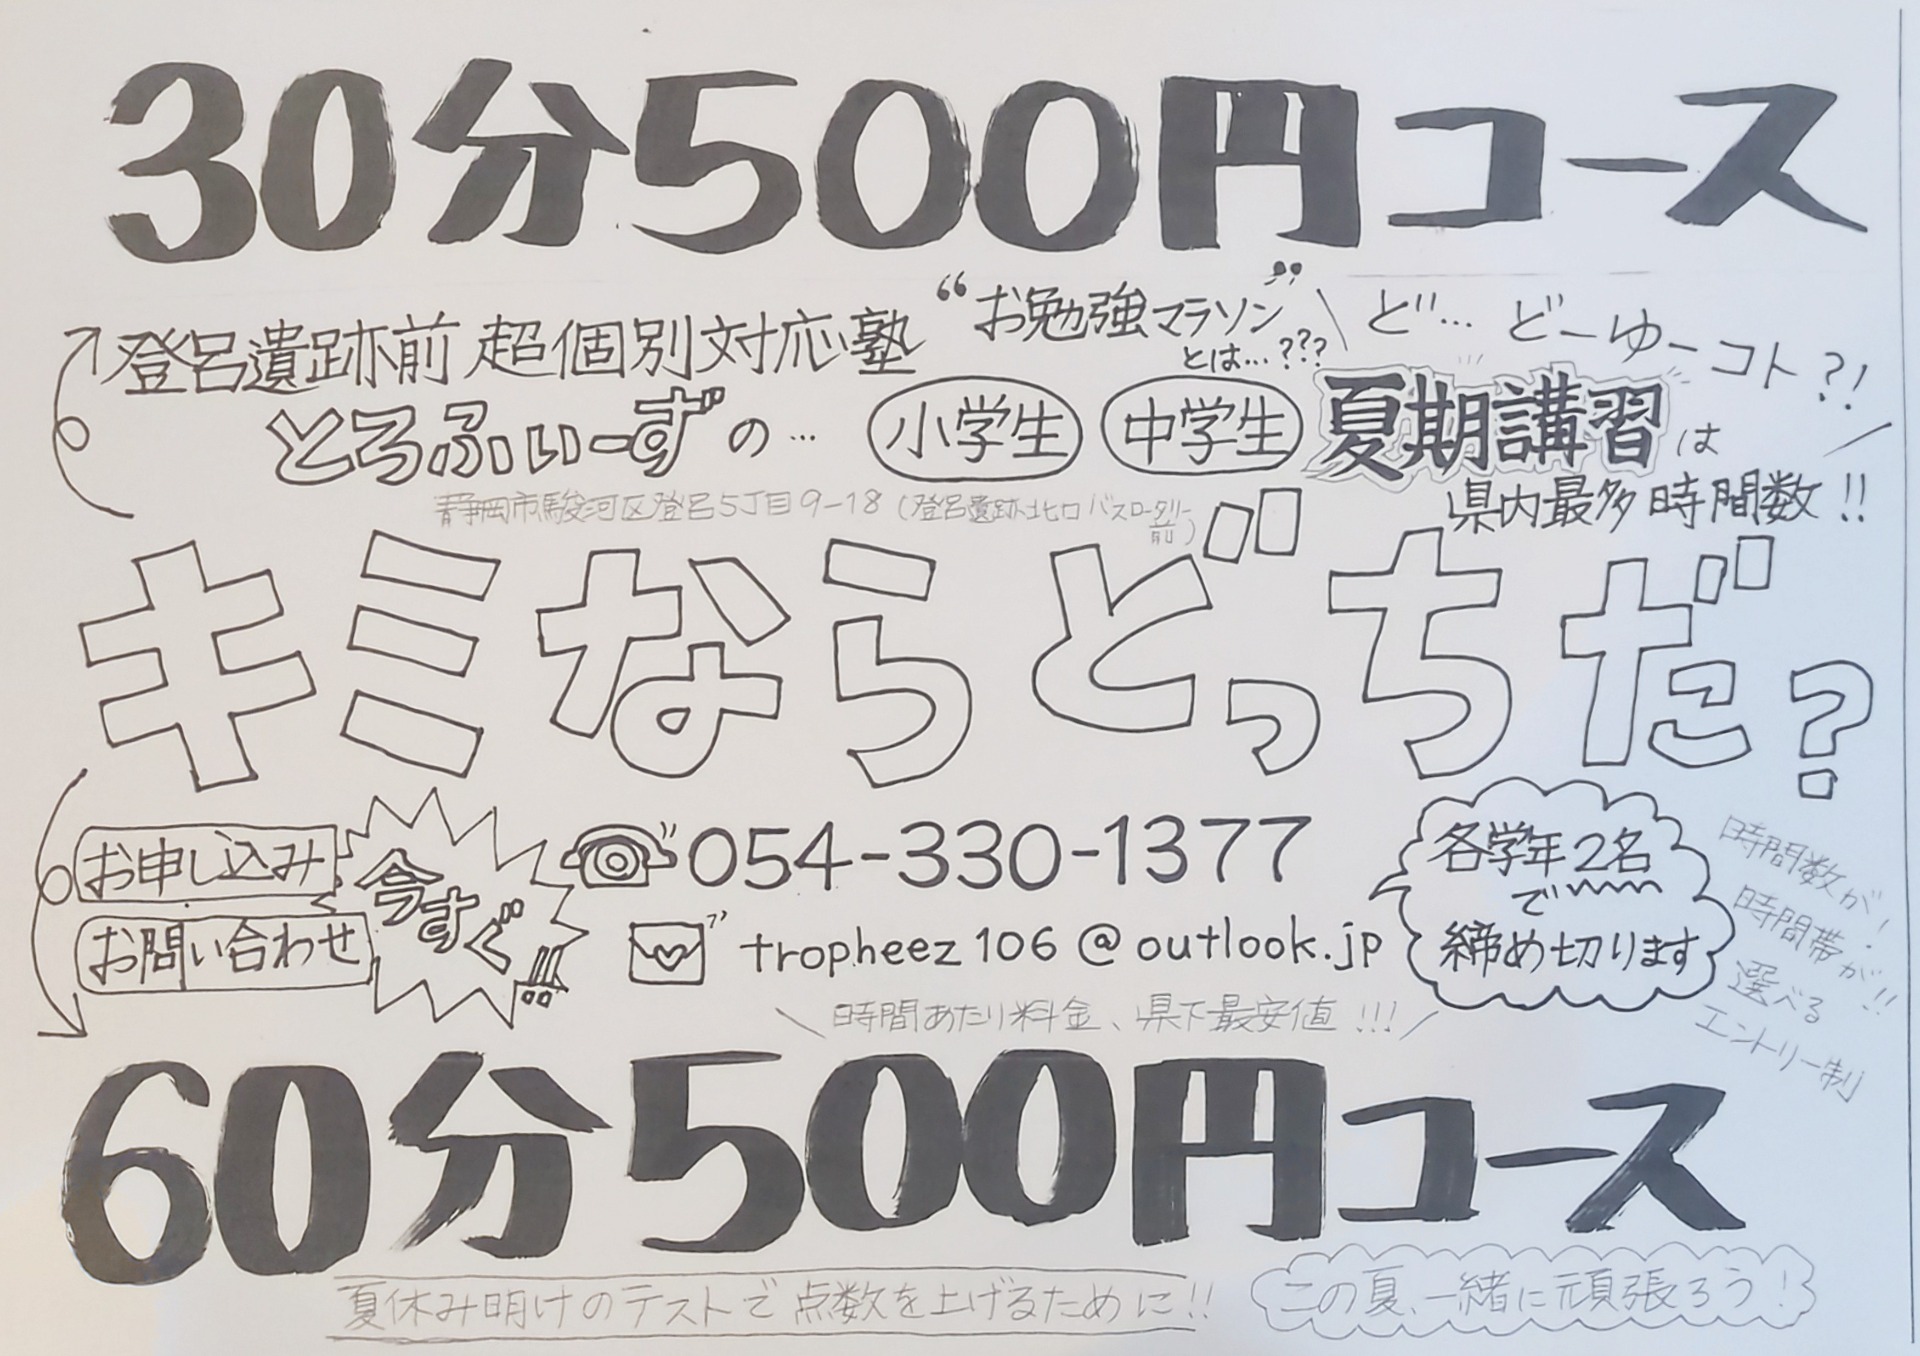 30分500円コース
登呂遺跡前 超個別対応塾
“お勉強マラソン”
とは…???
ど… どーゆーコト?!
とろふぃーずの…
小学生 中学生 夏期講習は
県内最多時間数!!
静岡市駿河区登呂5丁目9-18(登呂遺跡北口バスロータリー前)
キミならどっちだ?
お申し込み
お問い合わせ
今すぐ!!!
054-330-1377
tropheez106@outlook.jp
各学年2名
で
締め切ります
時間数が!
時間帯が!!
選べる
エントリー制
時間あたり料金、県下最安値!!!
60分500円コース
夏休み明けのテストで点数を上げるために!!
この夏、一緒に頑張ろう!